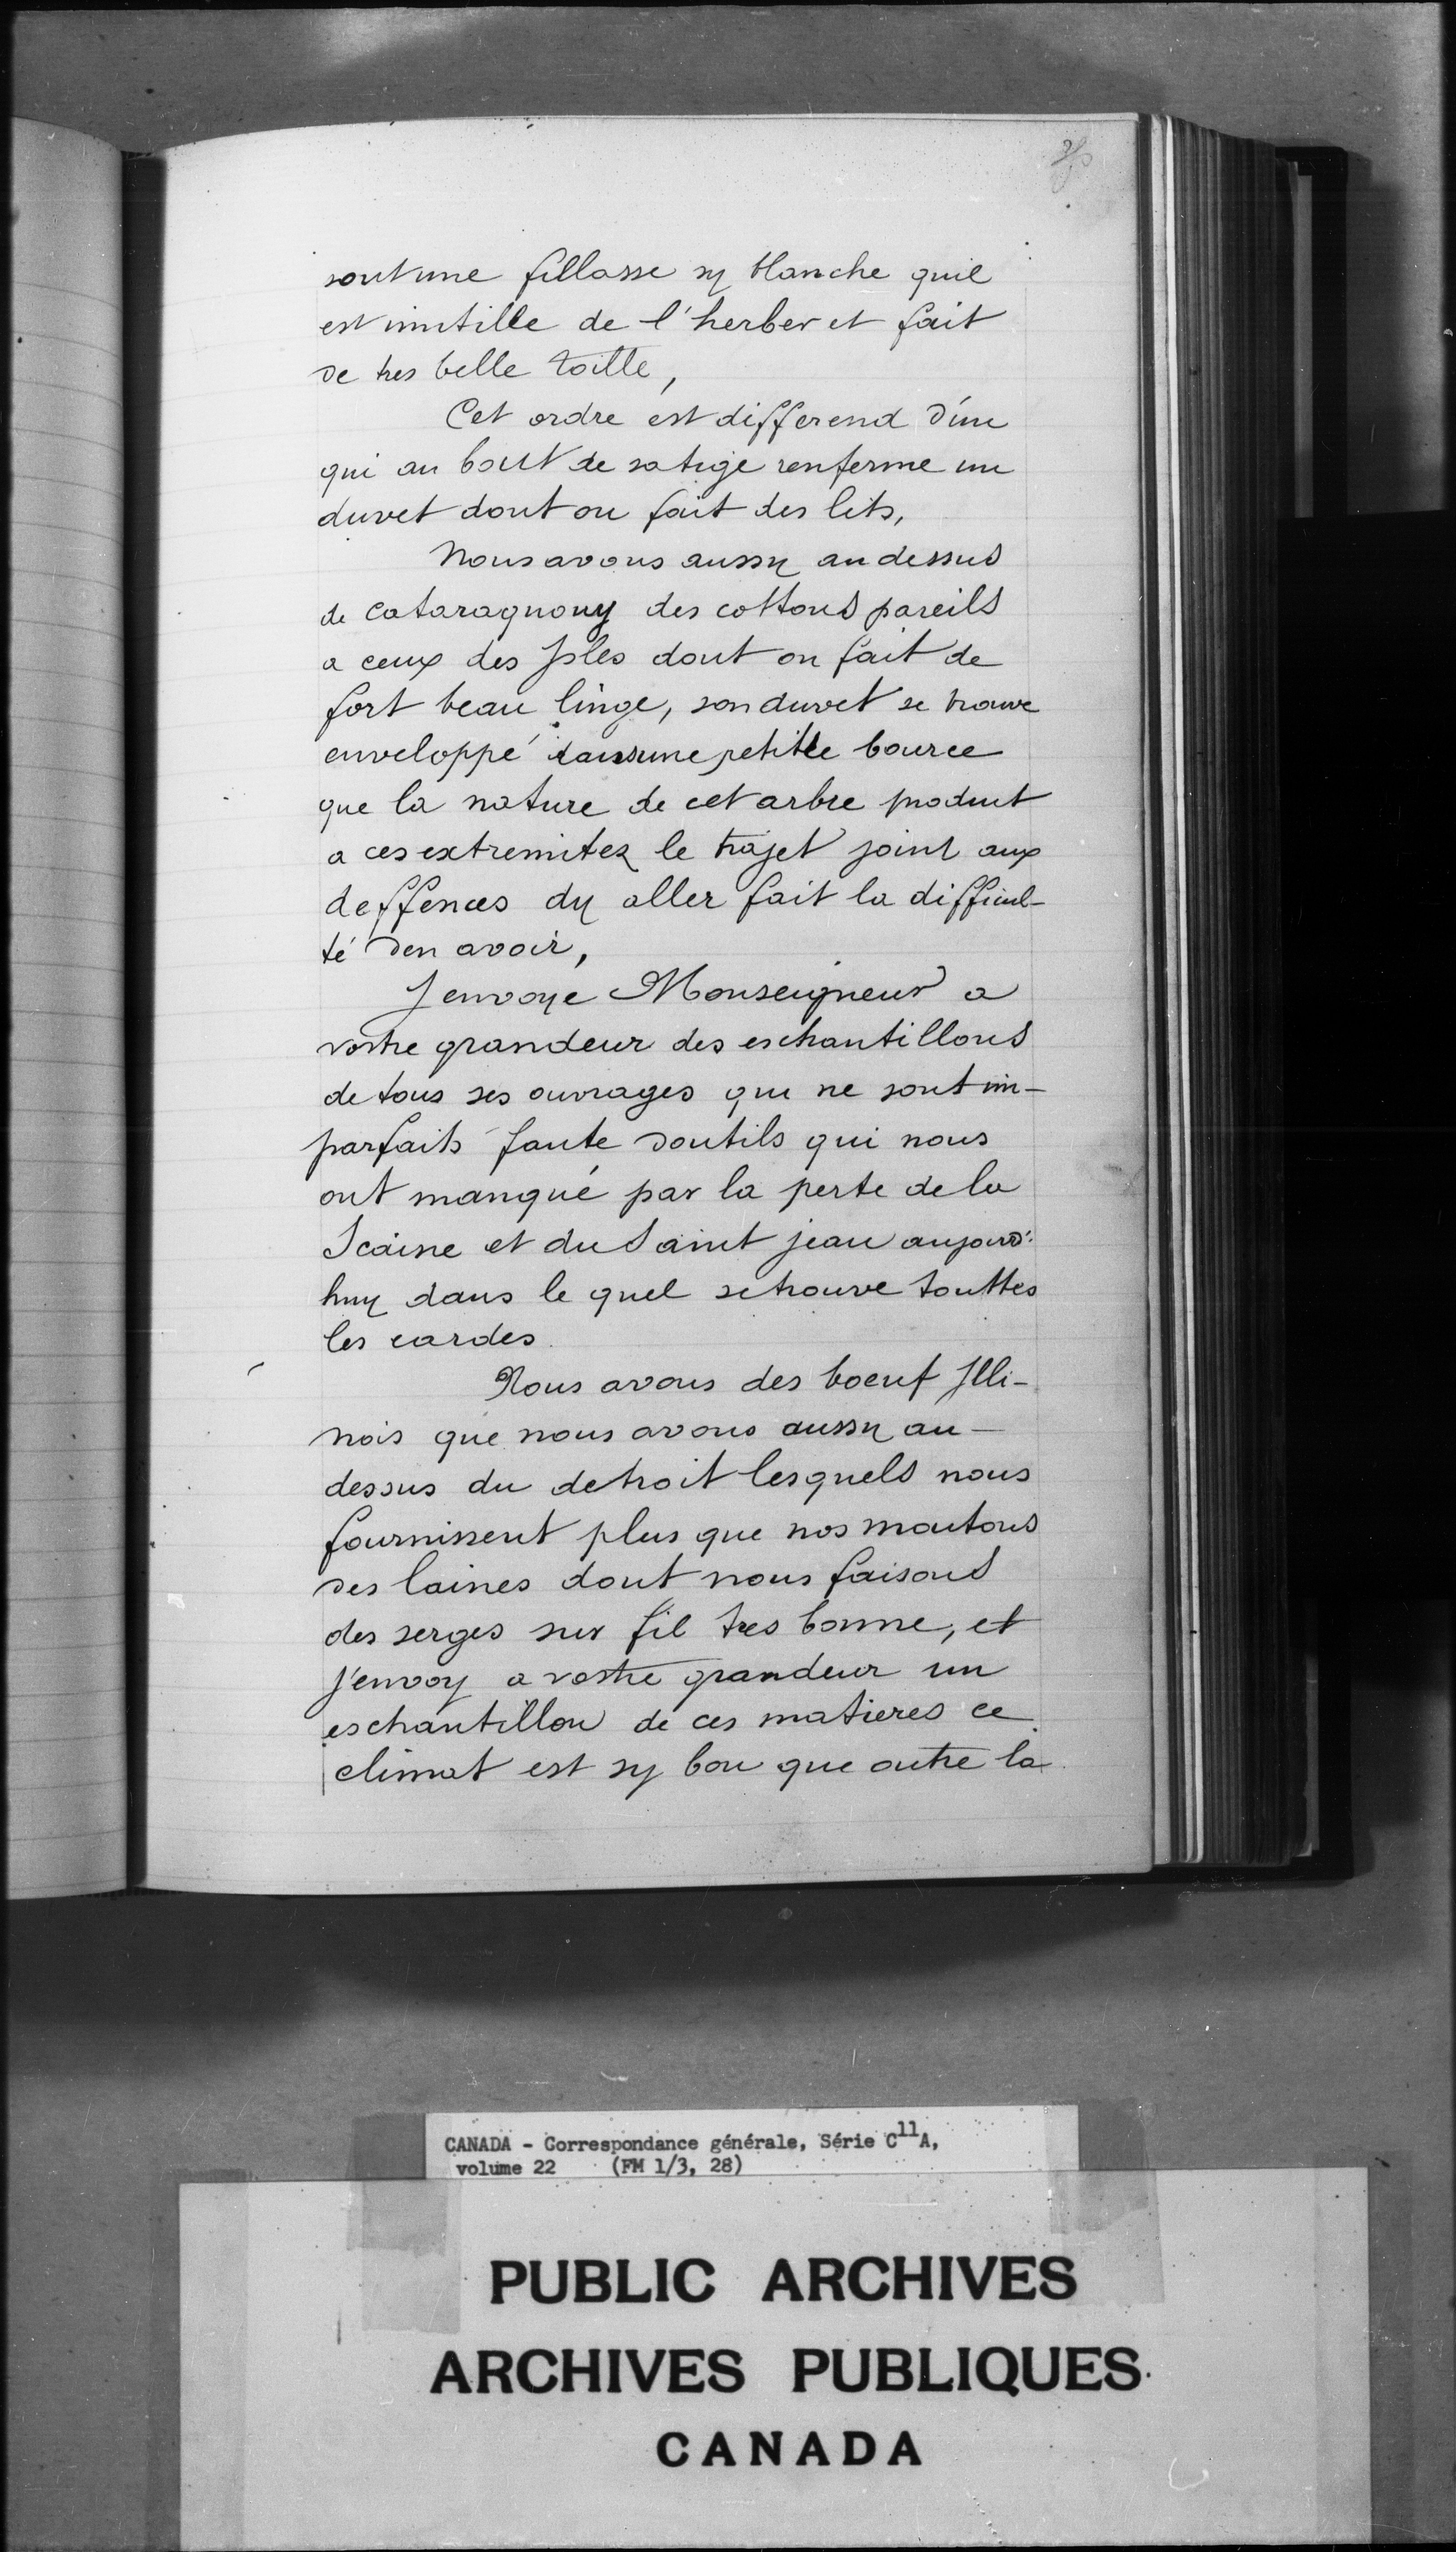 sont une fillasse sy blanche quil
est inutille de l'herber et fait
de tres belle toille,
Cet ordre est differend d'une
qui au bout de sa tige renferme un
duvet dont on fait des lits,
Nous avons aussy au dessus
de Cataragnouy des cottons pareils
a ceux des Jsles dont on fait de
fort beau linge, son duvet se trouve
enveloppé dans une petitte bource
que la nature de cet arbre produit
a ces extremitez le trajet joint aux
deffences dy aller fait la difficul-
té d'en avoir,
J envoye Monseigneur a
vostre grandeur des eschantillons
de tous ses ouvrages qui ne sont im-
parfaits faute doutils qui nous
ont manqué par la perte de la
Scaine et du Saint jean aujourd'
huy dans le quel se trouve touttes
les cardes.
Nous avons des boeuf Jlli-
nois que nous avons aussy au-
dessus du detroit lesquels nous
fournissent plus que nos moutons
des laines dont nous faisons
des serges sur fil tres bonne, et
j'envoy a vostre grandeur un
eschantillon de ces matieres ce
climat est sy bon que outre la
CANADA - Correspondance générale, Série C11A,
volume 22 (FM 1/3, 28)
PUBLIC ARCHIVES
ARCHIVES PUBLIQUES
CANADA